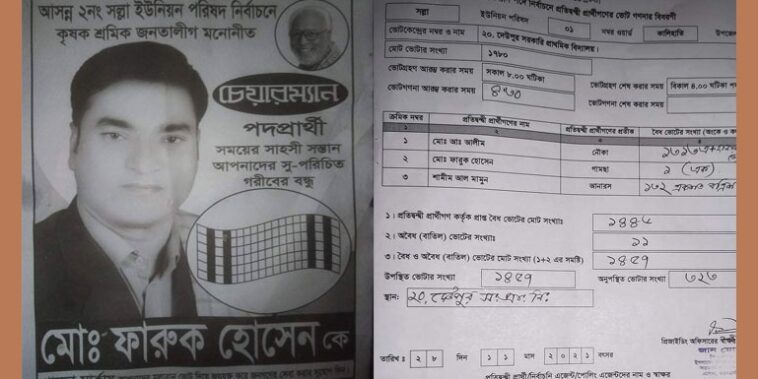 আসন্ন ২নং সল্লা ইউনিয়ন পরিষদ নির্বাচনে
কৃষক শ্রমিক জনতালীগ মনোনীত
চেয়ারম্যান
পদপ্রার্থী
সময়ের সাহসী সন্তান
আপনাদের সু-পরিচিত
গরীবের বন্ধু
মোঃ ফারুক হোসেন কে
নির্বাচনে প্রতিদ্বন্দ্বী প্রার্থীগণের ভোট গণনার বিবরণী
সল্লা ইউনিয়ন পরিষদ ০১ নম্বর ওয়ার্ড কালিহাতি
ভোটকেন্দ্রের নম্বর ও নাম ২০, দেউপুর সরকারি প্রাথমিক বিদ্যালয়।
মোট ভোটার সংখ্যা ১৭৮০
ভোটগ্রহণ আরম্ভ করার সময় সকাল ৮.০০ ঘটিকা ভোটগ্রহণ শেষ করার সময় বিকাল ৪.০০ ঘটিকা
ভোটগণনা আরম্ভ করার সময় ৪:৩০ ভোটগণনা শেষ করার সময়
ক্রমিক নম্বর প্রতিদ্বন্দ্বী প্রার্থীগণের নাম প্রতিদ্বন্দ্বী প্রার্থীগণের প্রতীক বৈধ ভোটের সংখ্যা (অংকে ও
১ ২ ৩
১ মোঃ আঃ আলীম নৌকা
২ মোঃ ফারুক হোসেন গামছা ১ (এক)
৩ শামীম আল মামুন আনারস ১৩২
১। প্রতিদ্বন্দ্বী প্রার্থীগণ কর্তৃক প্রাপ্ত বৈধ ভোটের মোট সংখ্যাঃ
২। অবৈধ (বাতিল) ভোটের সংখ্যাঃ ১১
৩। বৈধ ও অবৈধ (বাতিল) ভোটের মোট সংখ্যাঃ (১+২ এর সমষ্টি)
উপস্থিত ভোটার সংখ্যা অনুপস্থিত ভোটার সংখ্যা
স্থান: ২০, দেউপুর
প্রিজাইডিং অফিসারের
তারিখঃ ২৮ দিন ১১ মাস ২০২১ বৎসর
প্রতিদ্বন্দ্বী প্রার্থী/নির্বাচনি এজেন্ট/পোলিং এজেন্টদের নাম ও স্বাক্ষর